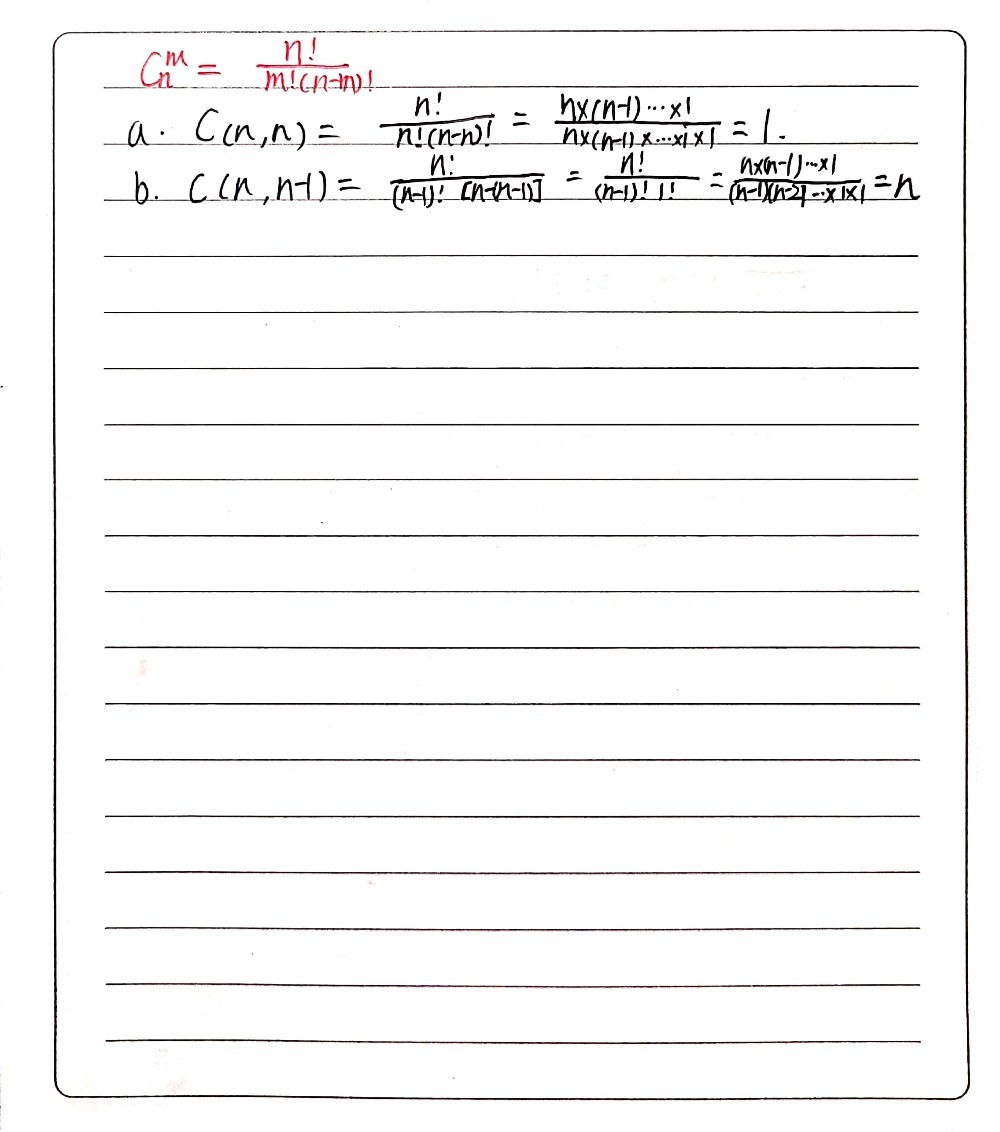 C_n^m = \frac{n!}{m!(n-m)!}
a. C(n,n) = \frac{n!}{n!(n-n)!} = \frac{n×(n-1)⋯×1}{n×(n-1)×⋯×1×1} = 1.
b. C(n,n-1) = \frac{n!}{(n-1)! [n-(n-1)]} = \frac{n!}{(n-1)! 1!} = \frac{n×(n-1)⋯×1}{(n-1)(n-2)⋯×1×1} = n